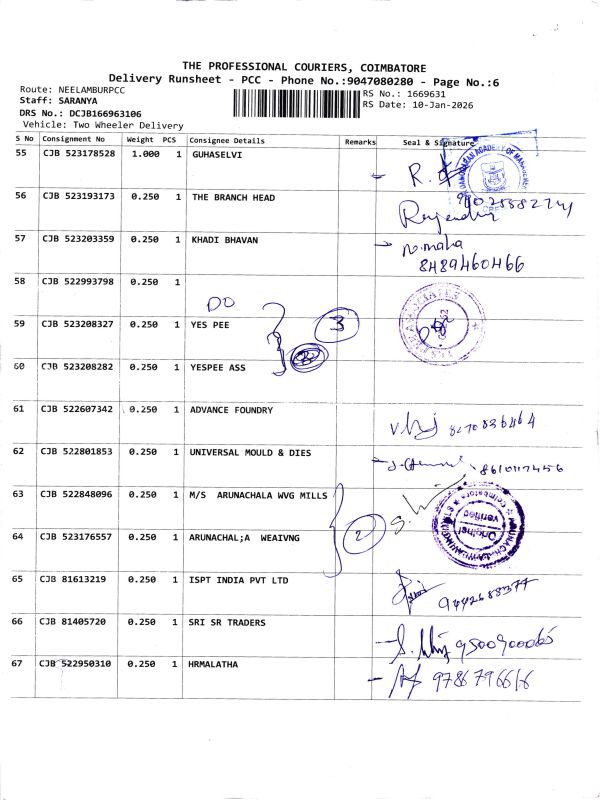 THE PROFESSIONAL COURIERS, COIMBATORE
Delivery Runsheet - PCC - Phone No.:9047080280 - Page No.:6
Route: NEELAMBURPCC
Staff: SARANYA
DRS No.: DCJB166963106
Vehicle: Two Wheeler Delivery
RS No.: 1669631
RS Date: 10-Jan-2026
S No Consignment No Weight PCS Consignee Details Remarks Seal & Signature
55 CJB 523178528 1.000 1 GUHASELVI
56 CJB 523193173 0.250 1 THE BRANCH HEAD
Rajendra
57 CJB 523203359 0.250 1 KHADI BHAVAN
8489460466
58 CJB 522993798 0.250 1
DO
59 CJB 523208327 0.250 1 YES PEE 3
60 CJB 523208282 0.250 1 YESPEE ASS
61 CJB 522607342 0.250 1 ADVANCE FOUNDRY
8270836464
62 CJB 522801853 0.250 1 UNIVERSAL MOULD & DIES
63 CJB 522848096 0.250 1 M/S ARUNACHALA WVG MILLS
Original
verified
64 CJB 523176557 0.250 1 ARUNACHAL;A WEAIVNG 2
65 CJB 81613219 0.250 1 ISPT INDIA PVT LTD
9442688377
66 CJB 81405720 0.250 1 SRI SR TRADERS
9500900065
67 CJB 522950310 0.250 1 HRMALATHA
9786796616